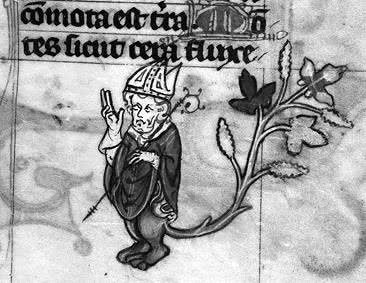 cōmota est tr̄a
tes sicut cera fluxe